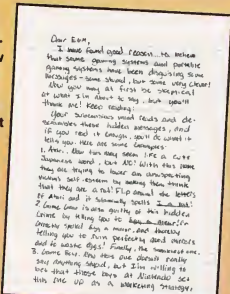 Dear EGM,
I have found good reason to believe
that some gaming systems and portable
gaming systems have been disguising some
messages - some stupid, but some very clever!
Now you may at first be skeptical
at what I'm about to say, but you'll
thank me! Keep reading:
Your subconscious mind reads and de-
these hidden messages, and
if you read it enough, you'll do what it
tells you. Here are some examples:
1. Atari. Now this may seem like a cute
Japanese word, but NO! With this name
they are trying to lower an unsuspecting
victim's self-esteem by making them think
that they are a rat! Flip around the letters
in Atari and it blatantly spells I a rat!
2. Game Gear is also guilty of this hidden
crime by telling you to
spelled by a mirror, and thereby
telling you to ruin perfectly good
and to waste eggs! Finally, the
3. Game Boy. Now this one doesn't really
say anything stupid, but I'm willing to
bet that those boys at Nintendo set
this one up as a marketing strategy.